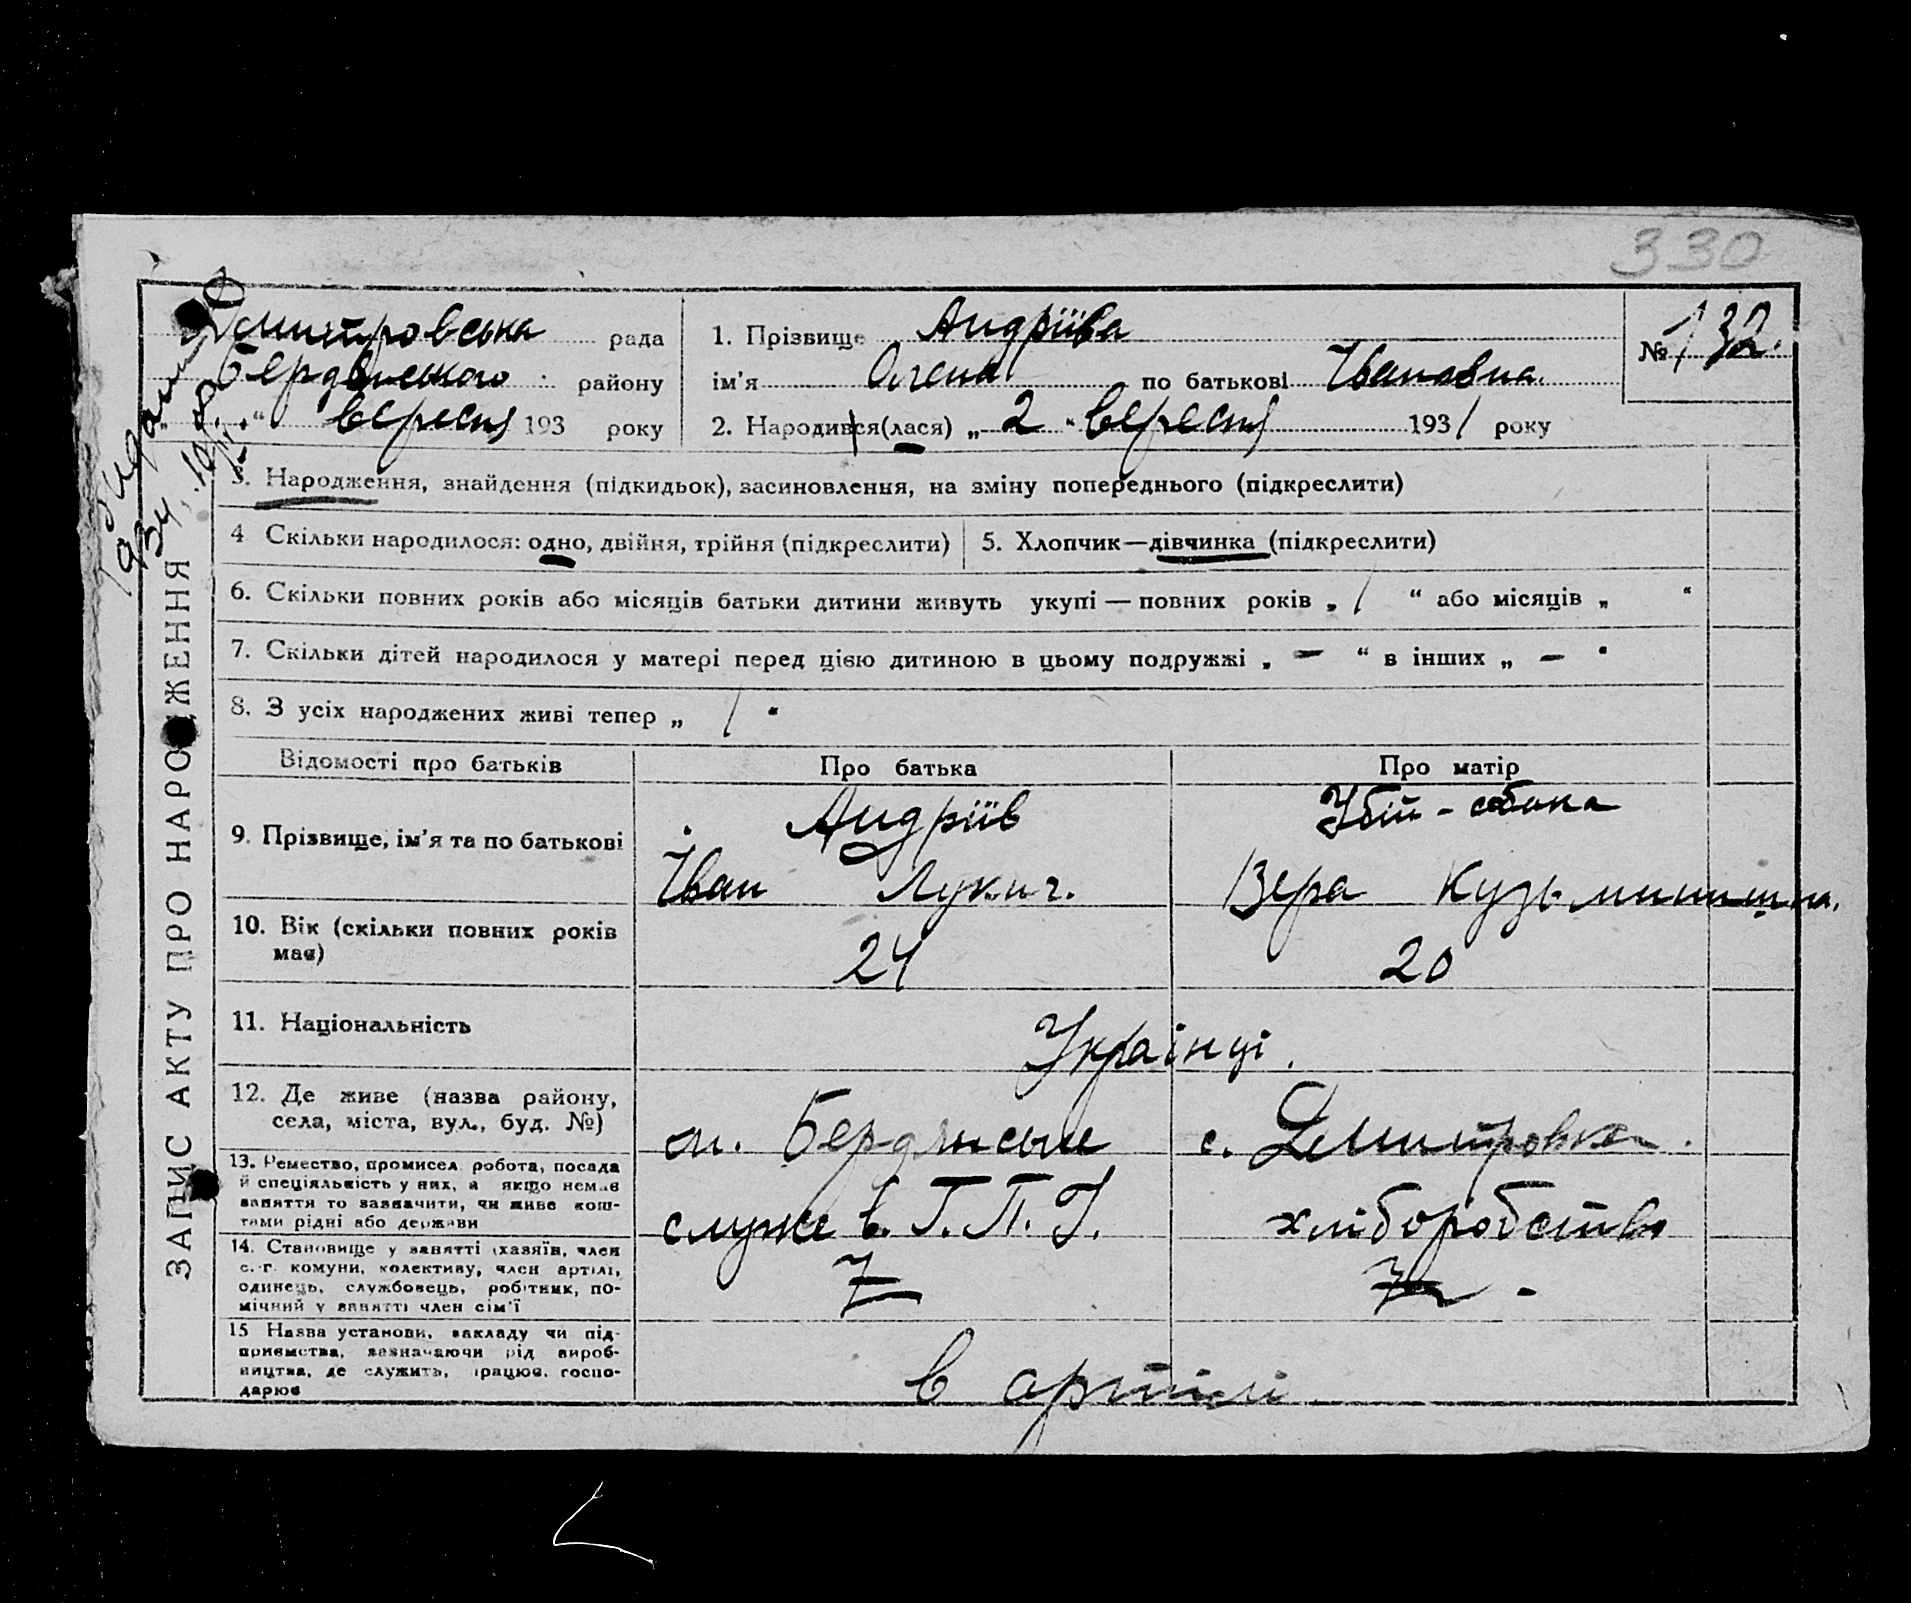 330
Дмитровська рада
Бердянського району
„ “ вересня 193 року
1. Прізвище Андріїва
ім’я Олена по батькові Івановна
№ 132.
2. Народився(лася) „ 2 “ вересня 1931 року
1934
3. Народження, знайдення (підкидьок), засиновлення, на зміну попереднього (підкреслити)
4 Скільки народилося: одно, двійня, трійня (підкреслити)
5. Хлопчик—дівчинка (підкреслити)
6. Скільки повних років або місяців батьки дитини живуть укупі — повних років „ 1 “ або місяців „ “
7. Скільки дітей народилося у матері перед цією дитиною в цьому подружжі „ — “ в інших „ — “
8. З усіх народжених живі тепер „ 1 “
ЗАПИС АКТУ ПРО НАРОДЖЕННЯ
Відомості про батьків Про батька Про матір
9. Прізвище, ім’я та по батькові
Андріїв
Іван Лукич.
Убій-собака
Вера Кузьминишна.
10. Вік (скільки повних років
має)
24 20
11. Національність
Українці.
12. Де живе (назва району,
села, міста, вул., буд. №)
м. Бердянське с. Дмитровка.
13. Ремество, промисел, робота, посада
й спеціяльність у них, а якщо немає
заняття то зазначити, чи живе кош-
тами рідні або держави
служе в. Г. П. У. хліборобство
14. Становище у занятті (хазяїн, член
с.-г. комуни, колективу, член артілі,
одинець, службовець, робітник, по-
мічний у занятті член сім’ї
15 Назва установи, закладу чи під-
приємства, зазначаючи рід вироб-
ництва, де служить, працює, госпо-
дарює
в артілі